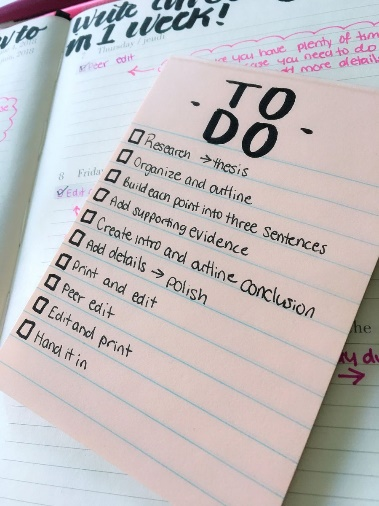 Write
in 1 week!
Thursday
Peer edit
you have plenty of time
you need to do
more details
8 Friday
- TO
DO -
Research → thesis
Organize and outline
Build each point into three sentences
Add supporting evidence
Create intro and outline conclusion
Add details → polish
Print and edit
Peer edit
Edit and print
Hand it in